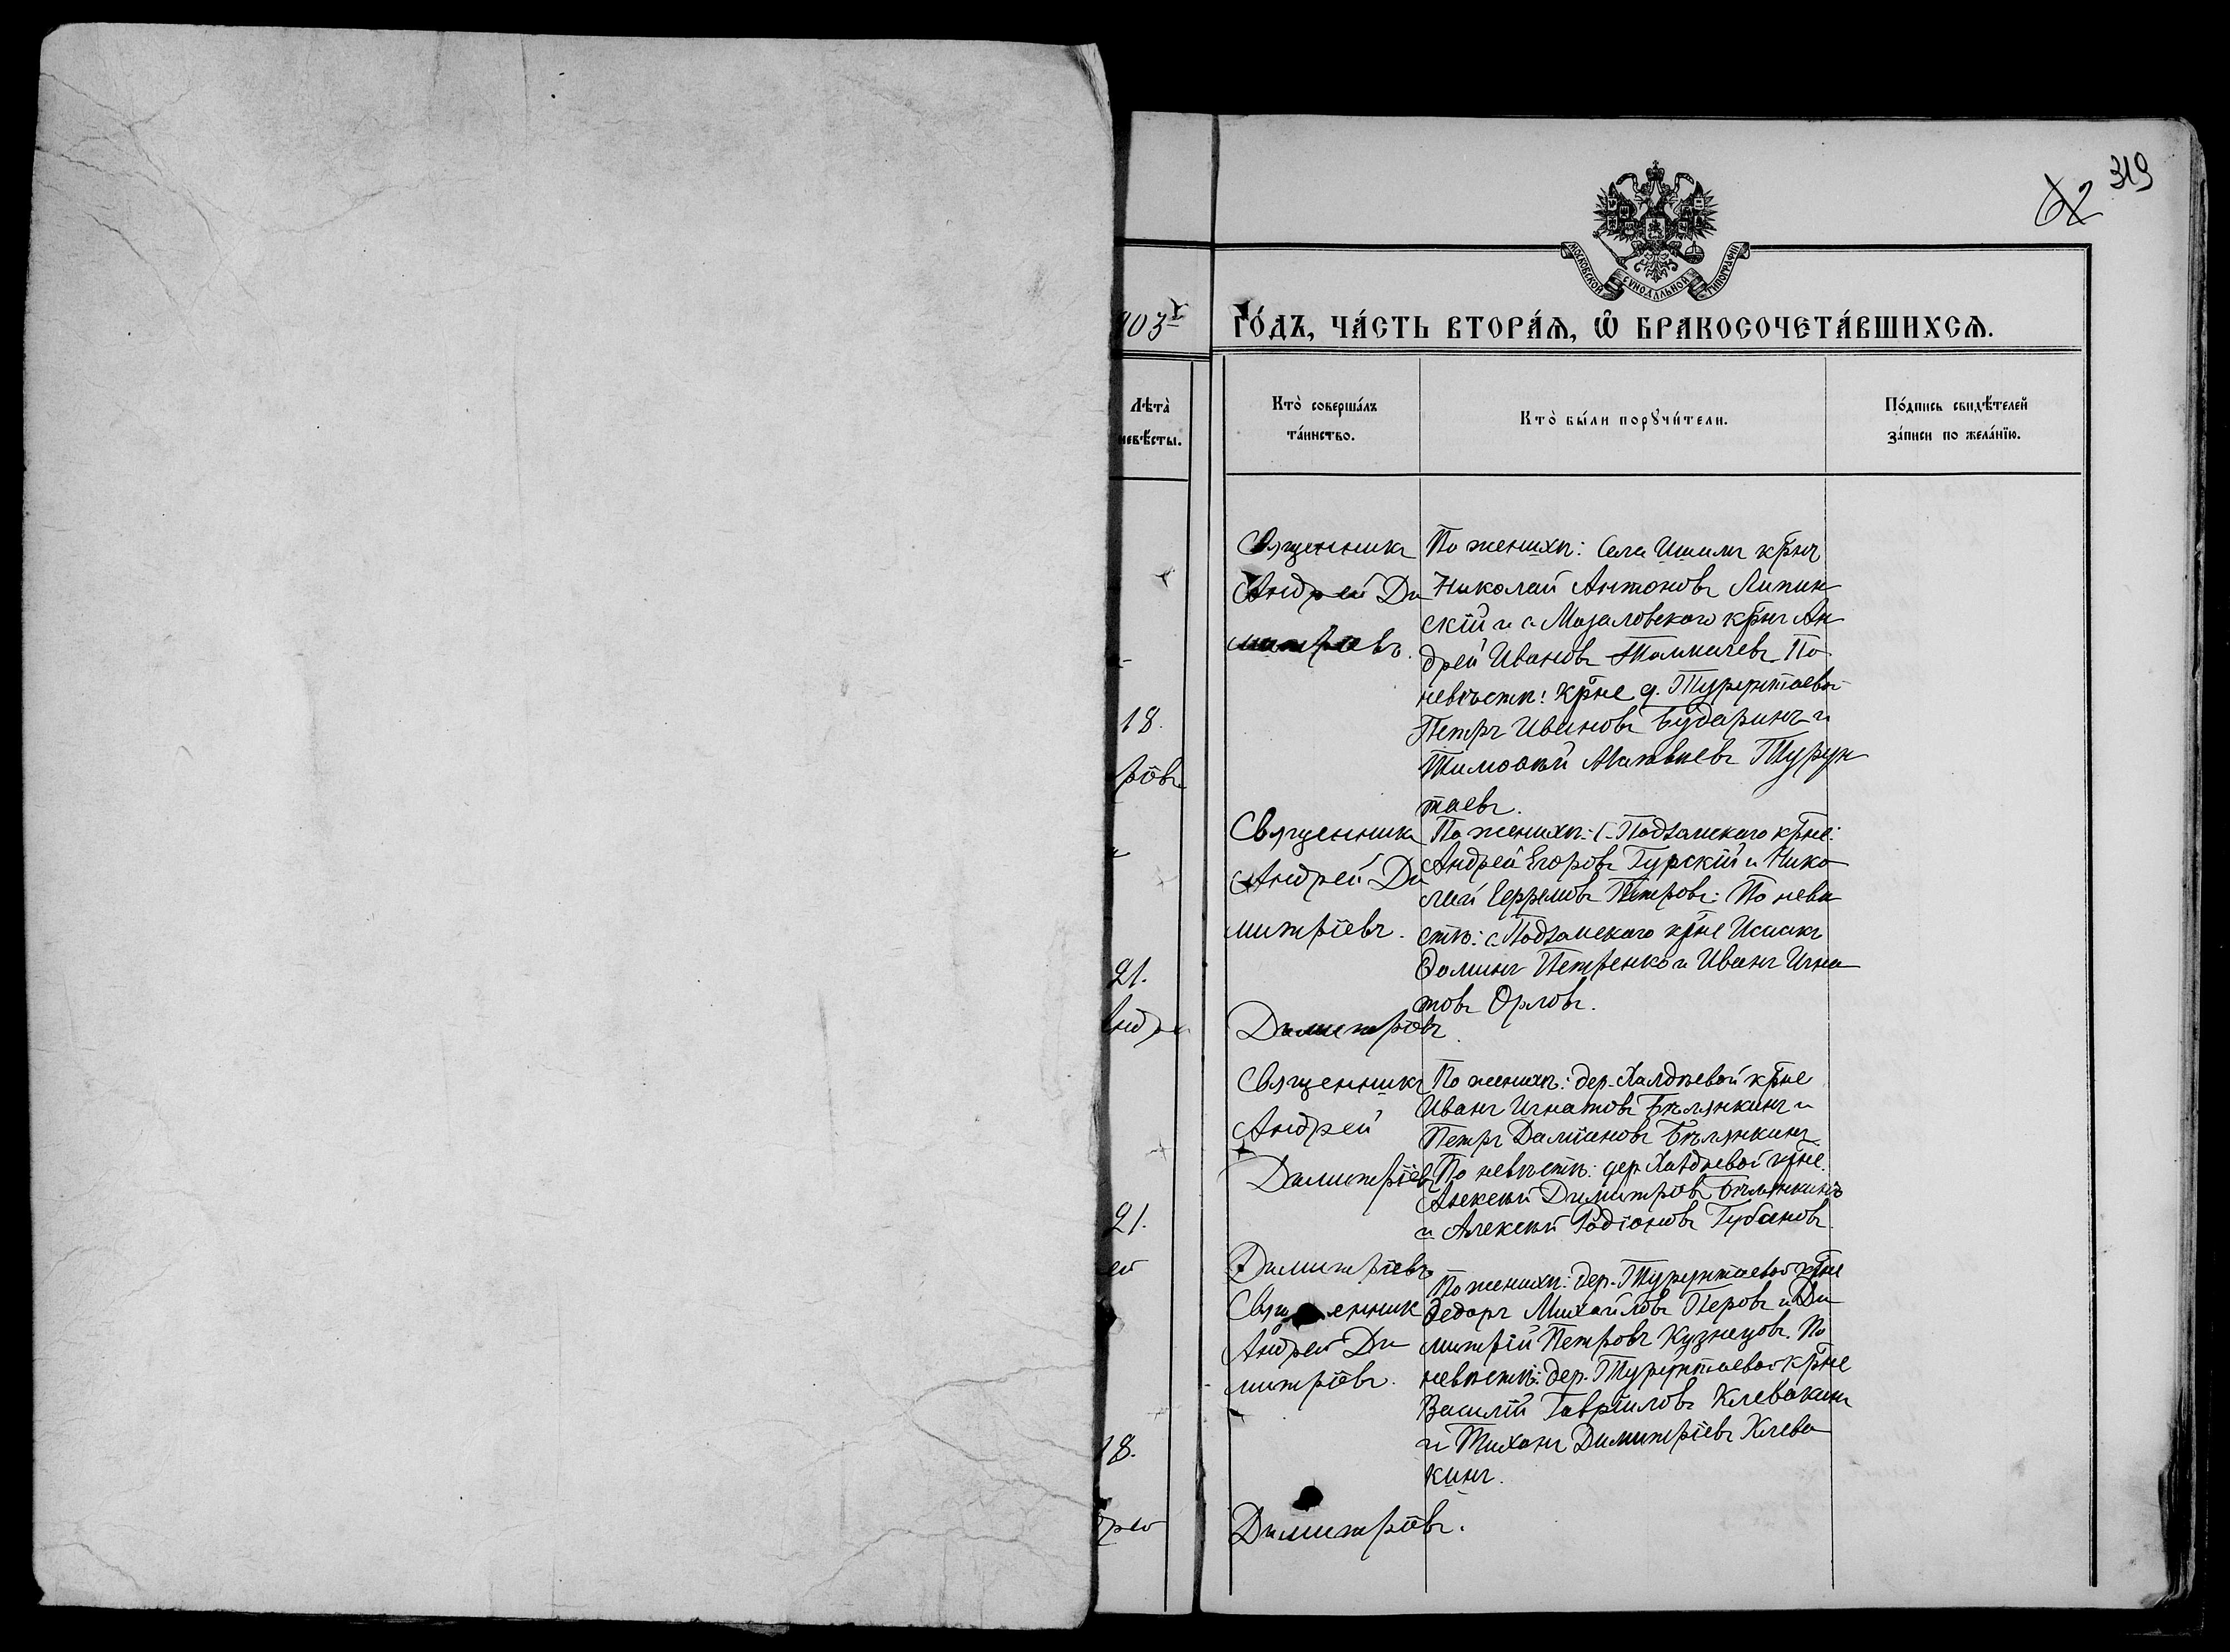 319
62
МОСКОВСКОЙ СѴНОДАЛЬНОЙ ТИПОГРАФІИ
903 го́дъ, ча́сть втора́ѧ, ѡ҆ бракосочета́вшихсѧ.
Лѣта̀
невѣ́сты.
Кто̀ соверша́лъ
та́инство.
Кто̀ бы́ли порꙋчи́тели.
По́дпись свидѣ́телей
за́писи по жела́нїю.
18.
ровъ
21.
Андре
21.
ей
18.
рей
Священникъ
Андрей Ди
митріевъ.
По женихѣ: Села Ишим крнъ
Николай Антоновъ Липин
скій и с. Мазаловскаго крнъ Ан
дрей Ивановъ Толмачевъ По
невѣстѣ: крне д. Турунтаевой
Петръ Ивановъ Бударинъ и
Тимофей Матвѣевъ Турун
таевъ.
Священникъ
Андрей Ди
митріевъ.
Димитріевъ.
По женихѣ: с. Подзамскаго крне:
Андрей Егоровъ Гурскій и Нико
лай Ефремовъ Петровъ: По невѣ
стѣ: с. Подзамскаго крне Исаакъ
Фоминъ Петренко и Иванъ Игна
товъ Орловъ.
Священникъ
Андрей
Димитріевъ
Димитріевъ
По женихѣ: дер. Халдѣевой крне
Иванъ Игнатовъ Бѣлянкинъ и
Петръ Даміановъ Бѣлянкинъ.
По невѣстѣ: дер. Халдѣевой крне.
Алексѣй Димитріевъ Бѣлянкинъ
и Алексѣй Родіоновъ Губановъ.
Священник
Андрей Ди
митріевъ.
Димитріевъ.
По женихѣ: дер. Турунтаевой крне
Ѳедоръ Михайловъ Перовъ и Ди
митрій Петровъ Кузнецовъ. По
невѣстѣ: дер. Турунтаевой крне
Василій Гавріиловъ Клевакинъ
и Тихонъ Димитріевъ Клева
кинъ.